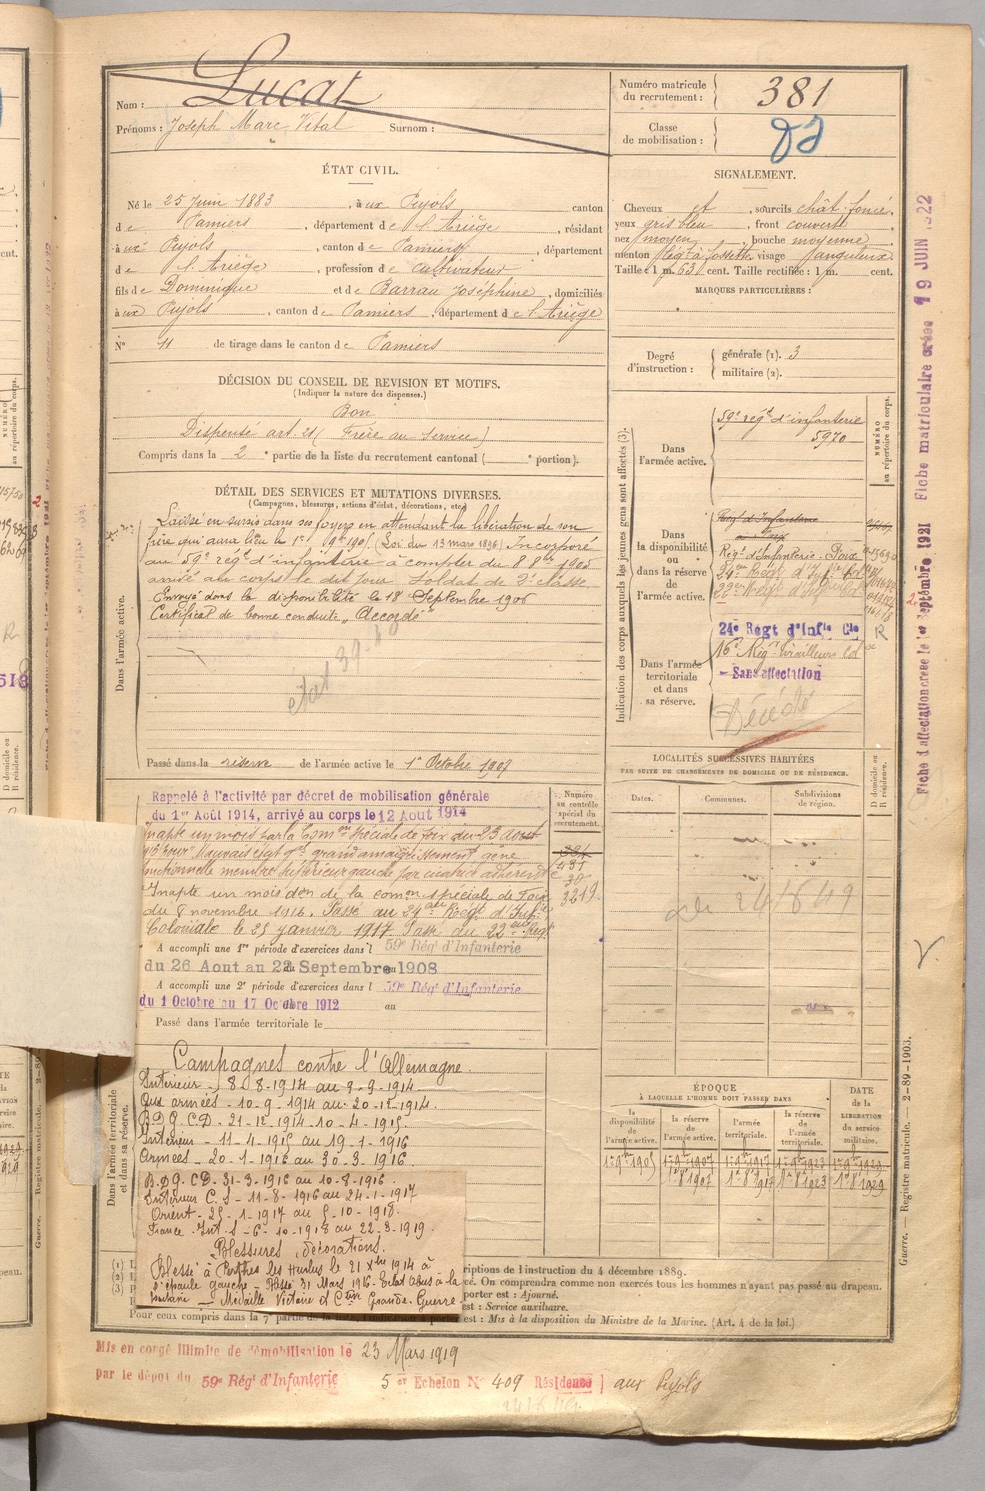 Nom : Lucat
Prénoms : Joseph Marc Vital Surnom :
Numéro matricule du recrutement : 381
Classe de mobilisation :
ÉTAT CIVIL.
Né le 25 Juin 1883, à ux Pujols canton
de Pamiers, département de l'Ariège, résidant
à ux Pujols, canton de Pamiers, département
de l'Ariège, profession de cultivateur
fils de Dominique et de Barrau Joséphine, domiciliés
à ux Pujols, canton de Pamiers, département de l'Ariège
N° 11 de tirage dans le canton de Pamiers
SIGNALEMENT.
Cheveux et, sourcils chât. foncé.
yeux gris bleu, front couvert
nez moyen, bouche moyenne
menton visage
Taille : 1 m. 63 cent. Taille rectifiée : 1 m. cent.
MARQUES PARTICULIÈRES :
Degré d'instruction : générale (1). 3
militaire (2).
DÉCISION DU CONSEIL DE REVISION ET MOTIFS.
(Indiquer la nature des dispenses.)
Bon
Dispensé art. 21 (Frère au service)
Compris dans la 2e partie de la liste du recrutement cantonal ( e portion).
DÉTAIL DES SERVICES ET MUTATIONS DIVERSES.
(Campagnes, blessures, actions d'éclat, décorations, etc.)
Dans l'armée active.
Laissé en sursis dans ses foyers en attendant la libération de son
frère qui aura lieu le 1er 9bre 1905 (Loi du 13 mars 1896) Incorporé
au 59e régt d'infanterie à compter du 8 8bre 1905
arrivé au corps le dit jour Soldat de 2e classe
Envoyé dans la disponibilité le 18 Septembre 1906
Certificat de bonne conduite "Accordé"
état 39
Passé dans la réserve de l'armée active le 1er Octobre 1907
Indication des corps auxquels les jeunes gens sont affectés (3).
NUMÉRO au répertoire du corps.
Dans l'armée active.
59e régt d'infanterie
5970
Dans la disponibilité ou dans la réserve de l'armée active.
Régt d'Infanterie
Régt d'Infanterie. Foix
24e Régt d'Infie Cle
22e Régt d'Infie Cle
24e Régt d'Infie Cle
R
Dans l'armée territoriale et dans sa réserve.
16e Régt tirailleurs
Sans affectation
Décédé
Rappelé à l'activité par décret de mobilisation générale
du 1er Août 1914, arrivé au corps le 12 Aout 1914
Inapte un mois par la Comon spéciale de Foix du 23 Aout
1916 pour Mauvais état gal grand amaigrissement gêne
fonctionnelle membre supérieur gauche par cicatrice adhérente
Inapte un mois don de la comon spéciale de Foix
du 8 novembre 1916. Passé au 24eme Régt d'Infie
Coloniale le 25 janvier 1917 Passé du 22eme Régt
Numéro au contrôle spécial du recrutement.
431
3219
A accompli une 1re période d'exercices dans l 59e Régt d'Infanterie
du 26 Aout au 22 Septembre 1908
A accompli une 2e période d'exercices dans l 59e Régt d'Infanterie
du 1 Octobre au 17 Octobre 1912 au
Passé dans l'armée territoriale le
LOCALITÉS SUCCESSIVES HABITÉES
PAR SUITE DE CHANGEMENTS DE DOMICILE OU DE RÉSIDENCE.
Dates. Communes. Subdivisions de région. D domicile ou R résidence.
Dans l'armée territoriale et dans sa réserve.
Campagnes contre l'Allemagne.
Intérieur - 8-8-1914 au 9-9-1914.
Aux armées - 10-9-1914 au 20-12-1914.
B.D.G. CD - 21-12-1914 10-4-1915.
Intérieur - 11-4-1915 au 19-1-1916
Armées - 20-1-1916 au 30-3-1916.
B.D.G. CD - 31-3-1916 au 10-8-1916.
Intérieur C.S - 11-8-1916 au 24-1-1917
Orient - 25-1-1917 au 5-10-1918.
France Int. S - 6-10-1918 au 22-3-1919.
Blessures, décorations.
Blessé à Perthes les Hurlus le 21 Xbre 1914 à
l'épaule gauche - Blessé 31 Mars 1916. Eclat Obus à la
Médaille Victoire et Ctive Grande Guerre.
ÉPOQUE
À LAQUELLE L'HOMME DOIT PASSER DANS
la disponibilité de l'armée active. la réserve de l'armée active. l'armée territoriale. la réserve de l'armée territoriale.
DATE de la LIBÉRATION du service militaire.
1er 9bre 1905 1er 9bre 1907 1er 9bre 1917 1er 9bre 1923 1er 9bre 1929
1er 8bre 1907 1er 8bre 1917 1er 8bre 1923 1er 8bre 1929
riptions de l'instruction du 4 décembre 1889.
cé. On comprendra comme non exercés tous les hommes n'ayant pas passé au drapeau.
porter est : Ajourné.
est : Service auxiliaire.
Pour ceux compris dans la 7e partie de la liste, l'indication à porter est : Mis à la disposition du Ministre de la Marine. (Art. 4 de la loi.)
Mis en congé illimité de démobilisation le 23 Mars 1919
par le dépôt du 59e Régt d'Infanterie 5 er Echelon N° 409 Résidence aux Pujols
Guerre. — Registre matricule. — 2-89-1903.
Fiche d'affectation créée le 1er Septembre 1921 Fiche matriculaire créée 19 JUIN 1922